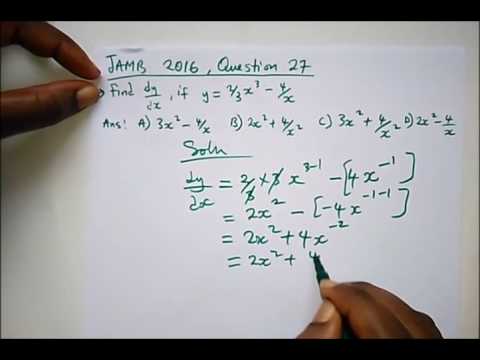 JAMB 2016, Question 27
Find dy/dx, if y = 2/3x³ - 4/x
Ans: A) 3x² - 4/x B) 2x² + 4/x² C) 3x² + 4/x² D) 2x² - 4/x
Soln
dy/dx = 2/3 × 3 x³⁻¹ - [4x⁻¹]
= 2x² - [-4x⁻¹⁻¹]
= 2x² + 4x⁻²
= 2x² + 4